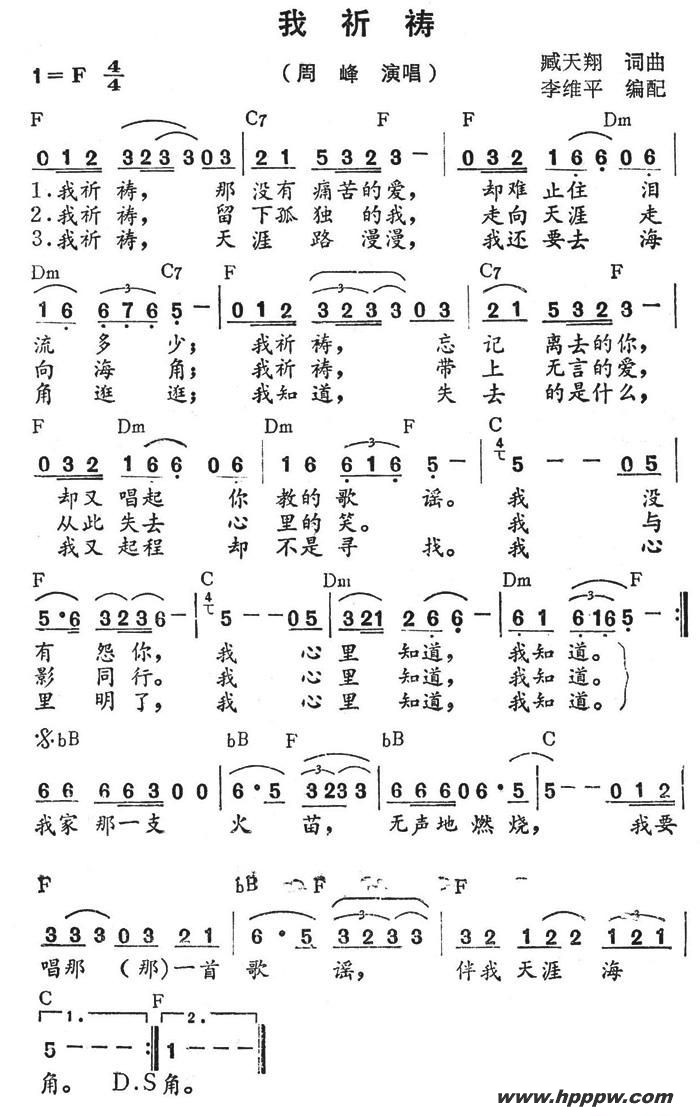 我祈祷
1=F 4/4 （周峰 演唱） 臧天翔 词曲
李维平 编配
F C7 F F Dm
0 1 2 3 2 3 3 0 3 | 2 1 5 3 2 3 – | 0 3 2 1 6 6 0 6
1.我祈祷， 那没有痛苦的爱， 却难止住泪
2.我祈祷， 留下孤独的我， 走向天涯走
3.我祈祷， 天涯路漫漫， 我还要去海
Dm C7 F C7 F
1 6 6 7 6 5 – | 0 1 2 3 2 3 3 0 3 | 2 1 5 3 2 3 – |
流多少； 我祈祷， 忘记离去的你，
向海角； 我祈祷， 带上无言的爱，
角逛逛； 我知道， 失去的是什么，
F Dm Dm F C
0 3 2 1 6 6 0 6 | 1 6 6 1 6 5 – | 5 – – 0 5
却又唱起你教的歌谣。 我没
从此失去心里的笑。 我与
我又起程却不是寻找。 我心
F C Dm Dm F
5 · 6 3 2 3 6 – | 5 – – 0 5 | 3 2 1 2 6 6 – | 6 1 6 1 6 5 – :||
有怨你， 我心里知道， 我知道。
影同行。 我心里知道， 我知道。
里明了， 我心里知道， 我知道。
bB bB F bB C
6 6 6 6 3 0 0 | 6 · 5 3 2 3 3 | 6 6 6 0 6 · 5 | 5 – – 0 1 2
我家那一支火苗， 无声地燃烧， 我要
F bB F F
3 3 3 0 3 2 1 | 6 · 5 3 2 3 3 | 3 2 1 2 2 1 2 1
唱那（那）一首歌谣， 伴我天涯海
C F
1. 2.
5 – – – :|| 1 – – – ||
角。 D.S 角。
www.hpppw.com